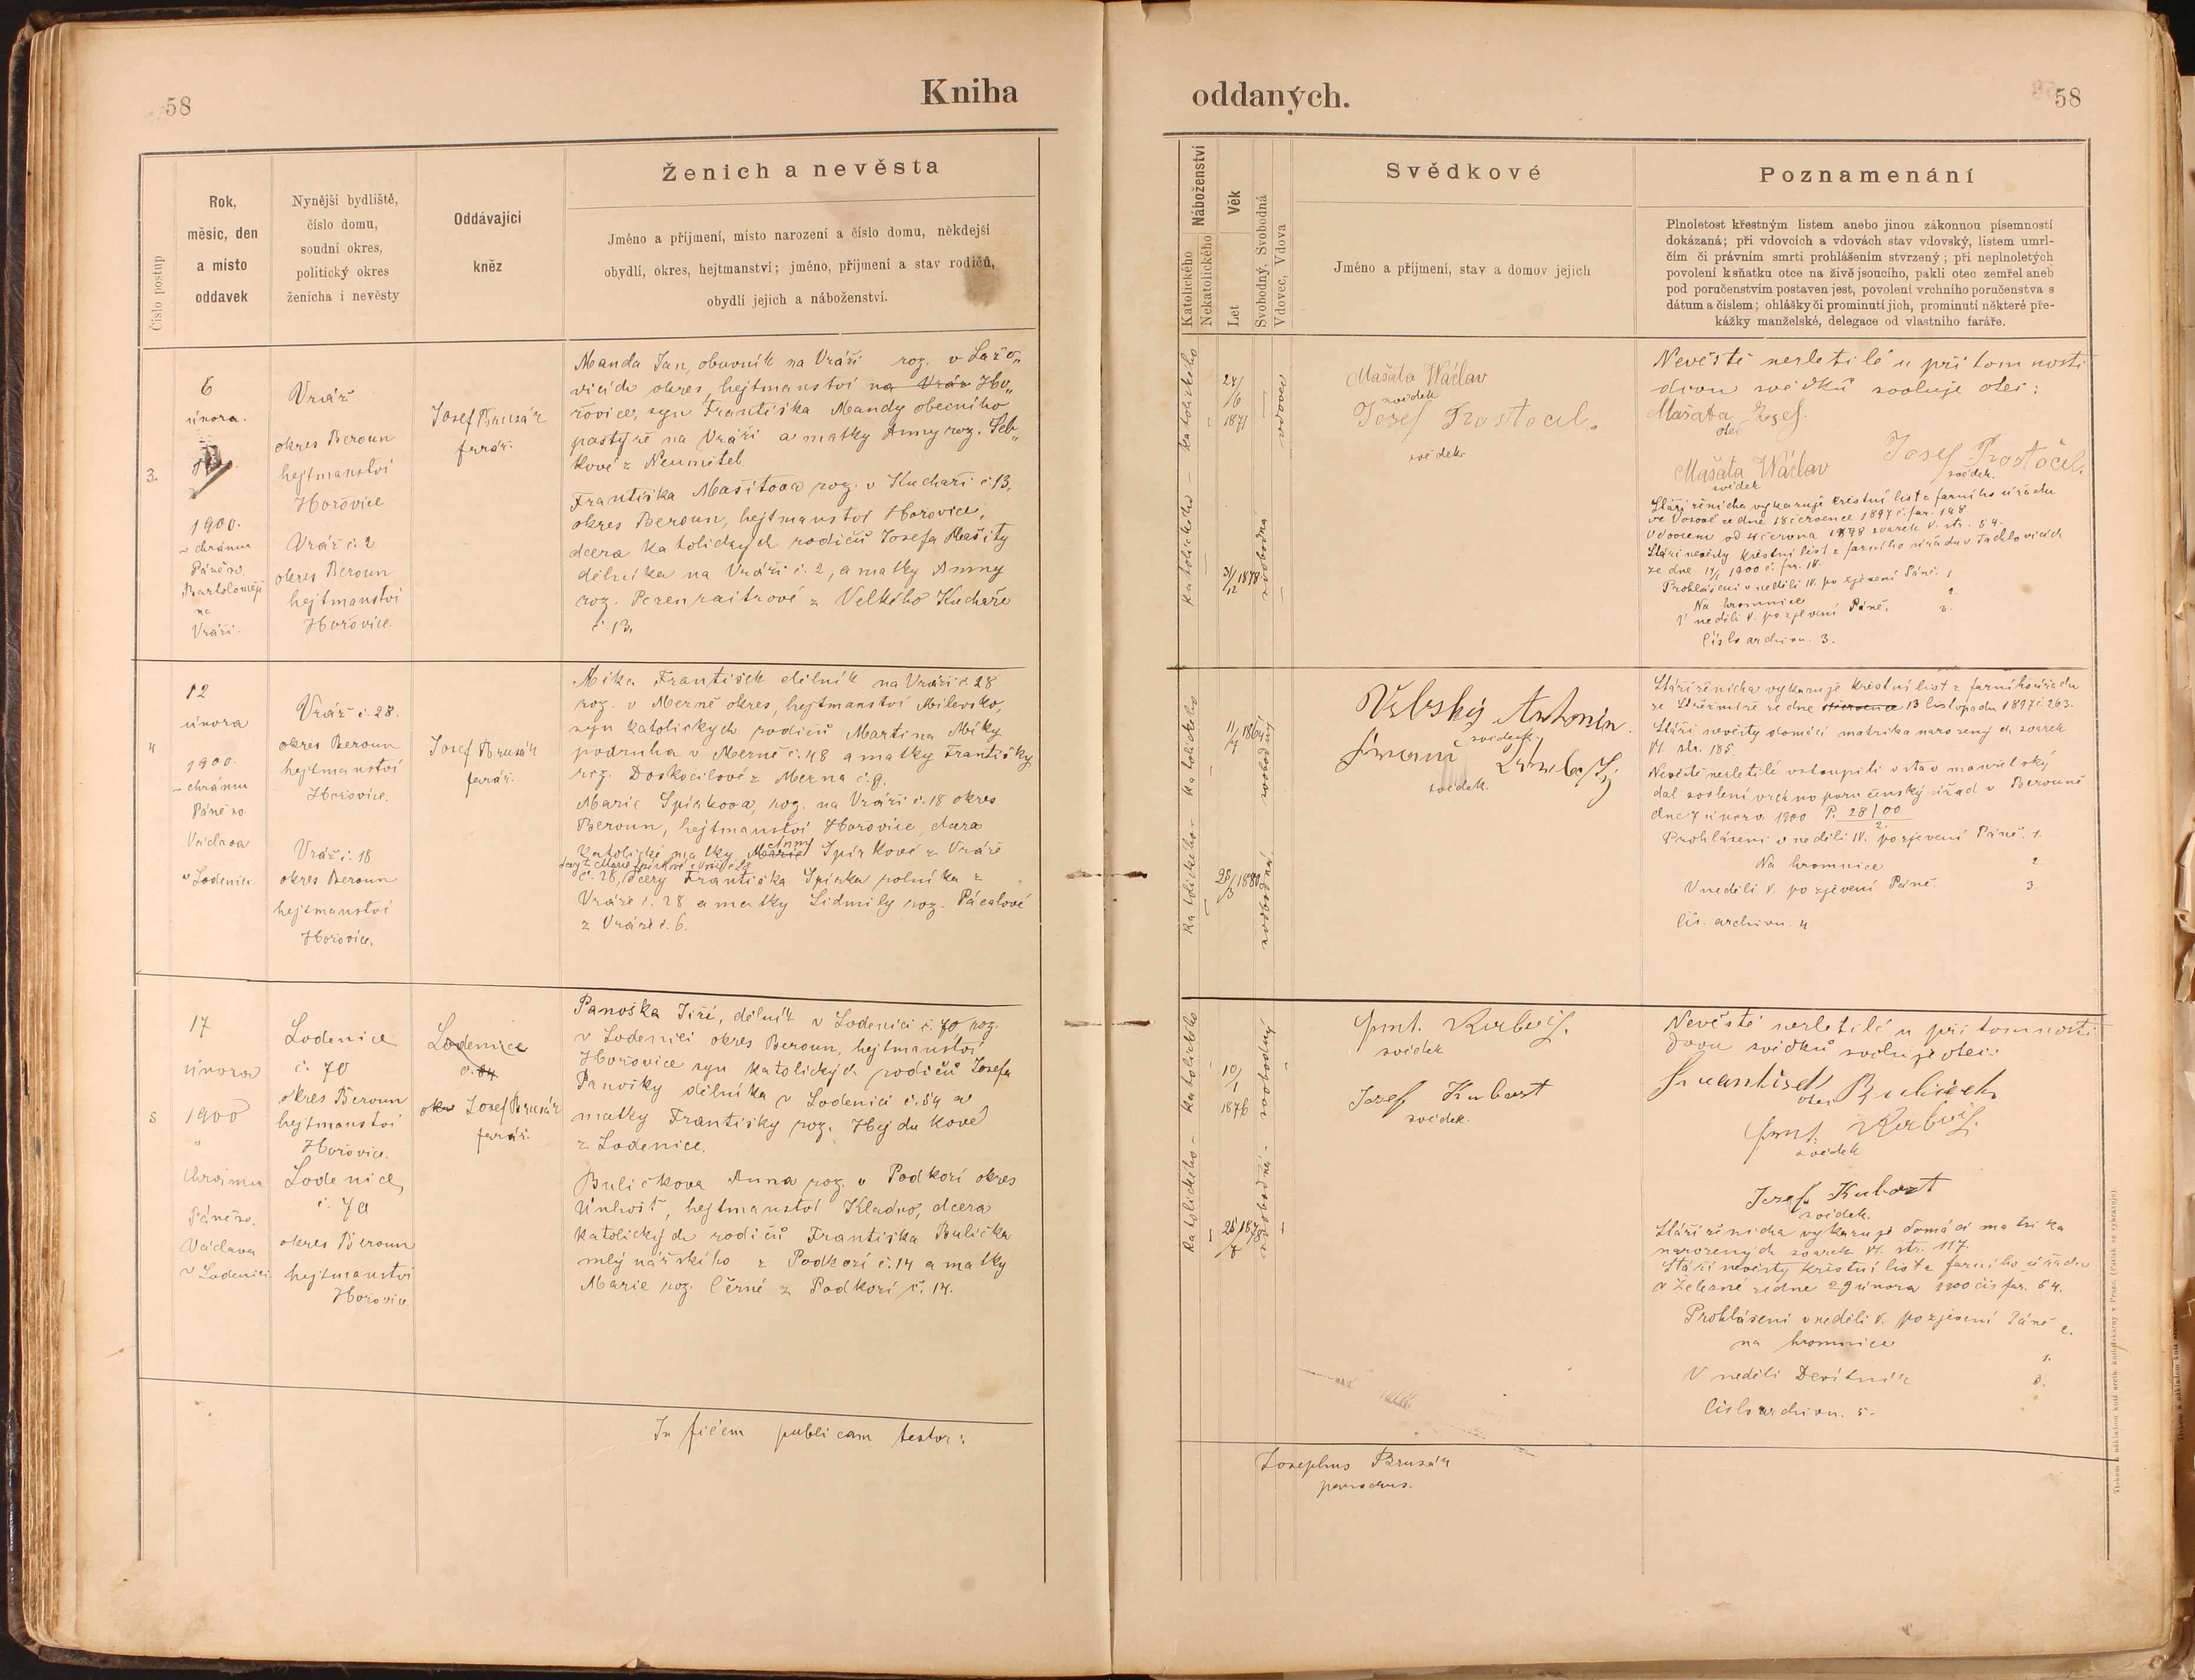 58
Kniha
Číslo postup
Rok,
měsíc, den
a místo
oddavek
Nynější bydliště,
číslo domu,
soudní okres,
politický okres
ženicha i nevěsty
Oddávající
kněz
Ženich a nevěsta
Jméno a příjmení, místo narození a číslo domu, někdejší
obydlí, okres, hejtmanství; jméno, příjmení a stav rodičů,
obydlí jejich a náboženství.
3.
6
února.
1900.
v chrámu
Páně sv.
Bartoloměje
na
Vráži.
Vráž
okres Beroun
hejtmanství
Hořovice
Vráž č. 2
okres Beroun
hejtmanství
Hořovice.
Josef Brusák
farář.
Manda Jan, obuvník na Vráži roz. v Lažo„
vicích okres, hejtmanství na Vráž Ho„
řovice, syn Františka Mandy obecního
pastýře na Vráži a matky Anny roz. Seb„
kové z Neumětel
Františka Mašitova roz. v Kuchaři č 13,
okres Beroun, hejtmanství Hořovice,
dcera katolických rodičů Josefa Mašity
dělníka na Vráži č. 2, a matky Anny
roz. Perenraitrové z Velkého Kuchaře
č. 13.
4
12
února
1900.
v chrámu
Páně sv.
Václava
v Loděnici
Vráž č. 28.
okres Beroun
hejtmanství
Hořovice.
Vráž č. 18
okres Beroun
hejtmanství
Hořovice.
Josef Brusák
farář.
Mika František dělník na Vráži č. 28
roz. v Nerně okres, hejtmanství Milevsko,
syn katolických rodičů Martina Míky
podruha v Nerně č. 48 a matky Františky
roz. Doskočilové z Nerna č. 9.
Marie Spirkova, roz. na Vráži č. 18 okres
Beroun, hejtmanství Hořovice, dcera
Anny
katolické matky Marie Spirkové z Vráže
č. 28, dcery Františka Spirka polníka z
Vráže č. 28 a matky Lidmily roz. Pácalové
z Vráže č. 6.
5
17
února
1900
v
chrámu
Páně sv.
Václava
v Loděnici
Loděnice
č. 70
okres Beroun
hejtmanství
Hořovice.
Loděnice
č. 70
okres Beroun
hejtmanství
Hořovice.
Loděnice
č. 84
okr Josef Brusák
farář.
Panoška Jiří, dělník v Loděnici č. 70 roz.
v Loděnici okres Beroun, hejtmanství
Hořovice syn katolických rodičů Josefa
Panošky dělníka v Loděnici č. 84 a
matky Františky roz. Hejdukové
z Loděnice.
Buličkova Anna roz. v Podkoží okres
Unhošť, hejtmanství Kladno, dcera
katolických rodičů Františka Bulička
mlynářského z Podkoží č. 14 a matky
Marie roz. Černé z Podkoží č. 14.
In fidem publicam testor:
oddaných.
58
Náboženství
Katolického
Nekatolického
Věk
Let
Svobodný, Svobodná
Vdovec, Vdova
Svědkové
Jméno a příjmení, stav a domov jejich
Poznamenání
Plnoletost křestným listem anebo jinou zákonnou písemností
dokázaná; při vdovcích a vdovách stav vdovský, listem umrl-
čím či právním smrti prohlášením stvrzený; při neplnoletých
povolení k sňatku otce na živě jsoucího, pakli otec zemřel aneb
pod poručenstvím postaven jest, povolení vrchního poručenstva s
dátum a číslem; ohlášky či prominutí jich, prominutí některé pře-
kážky manželské, delegace od vlastního faráře.
katolického
24/
/6
1871
vdovec
katolického
31/
/12 1878
svobodna
Mašata Wáclav
svědek
Josef Prostocil.
svědek
Nevěstě nezletilé u přítomnosti
dvou svědků svoluje otec:
Mašata Josef.
otec
Josef Prostočil.
svědek.
Mašata Wáclav
svědek
Stáří ženicha vykazuje křestní list z farního úřadu
ve Vosově ze dne 18 července 1897 č. far. 148.
Vdovcem od 4 června 1898 svazek V. str. 54.
Stáří nevěsty křestní list z farního úřadu v Tachlovicích
ze dne 14/1 1900 č. far. 18.
Prohlášení v neděli IV. po zjevení Páně. 1
Na hromnice 2
V neděli V. po zjevení Páně. 3.
Číslo archivu. 3.
katolického
11/
/7 1864
svobodný
katolického
25/
/3 1880
svobodná
Vrbský Antonín.
svědek.
svědek.
Stáří ženicha vykazuje křestní list z farního úřadu
ze dne 13 listopadu 1897 č. 263.
Stáří nevěsty domácí matrika narozených svazek
VI. str. 185
Nevěstě nezletilé vstoupiti v stav manželský
dal svolení vrchno poručenský úřad v Berouně
dne 7 února 1900 P. 28/00
2.
Prohlášení v neděli IV. po zjevení Páně. 1.
Na hromnice 2
V neděli V. po zjevení Páně 3.
čís. archivu. 4
katolického
10/
/1
1876
svobodný
katolického
25/
/8 1878
svobodná
svědek
Josef Kubart
svědek.
Nevěstě nezletilé u přítomnosti
dvou svědků svoluje otec:
František Buliček
otec
svědek
Josef Kubart
svědek.
Stáří ženicha vykazuje domácí matrika
narozených svazek VI. str. 117.
Stáří nevěsty křestní list z farního úřadu
v Železné ze dne 29 února 1900 čís far. 64.
Prohlášení v neděli V. po zjevení Páně 2.
na hromnice 1.
V neděli Devítník 3.
Číslo archivu. 5.
Josephus Brusák
parochus.